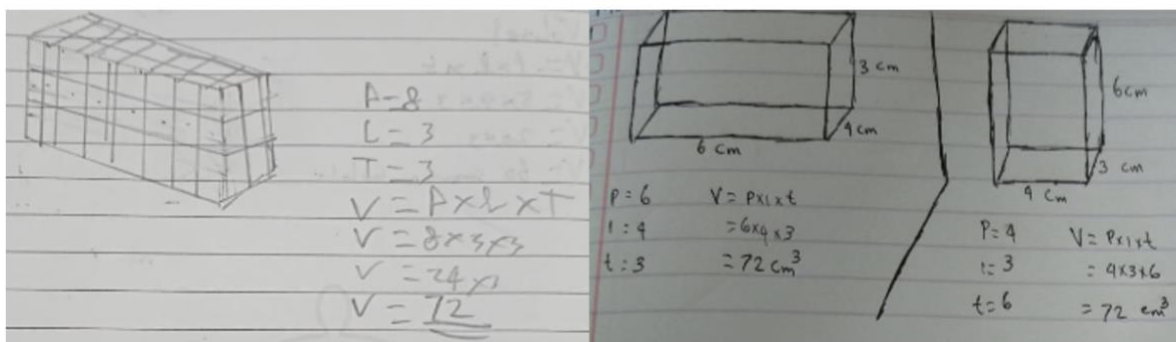 P = 8
L = 3
T = 3
V = P x L x T
V = 8 x 3 x 3
V = 24 x 3
V = 72
3 cm
4 cm
6 cm
P = 6
l = 4
t = 3
V = P x l x t
= 6 x 4 x 3
= 72 cm³
6 cm
3 cm
4 cm
P = 4
l = 3
t = 6
V = P x l x t
= 4 x 3 x 6
= 72 cm³